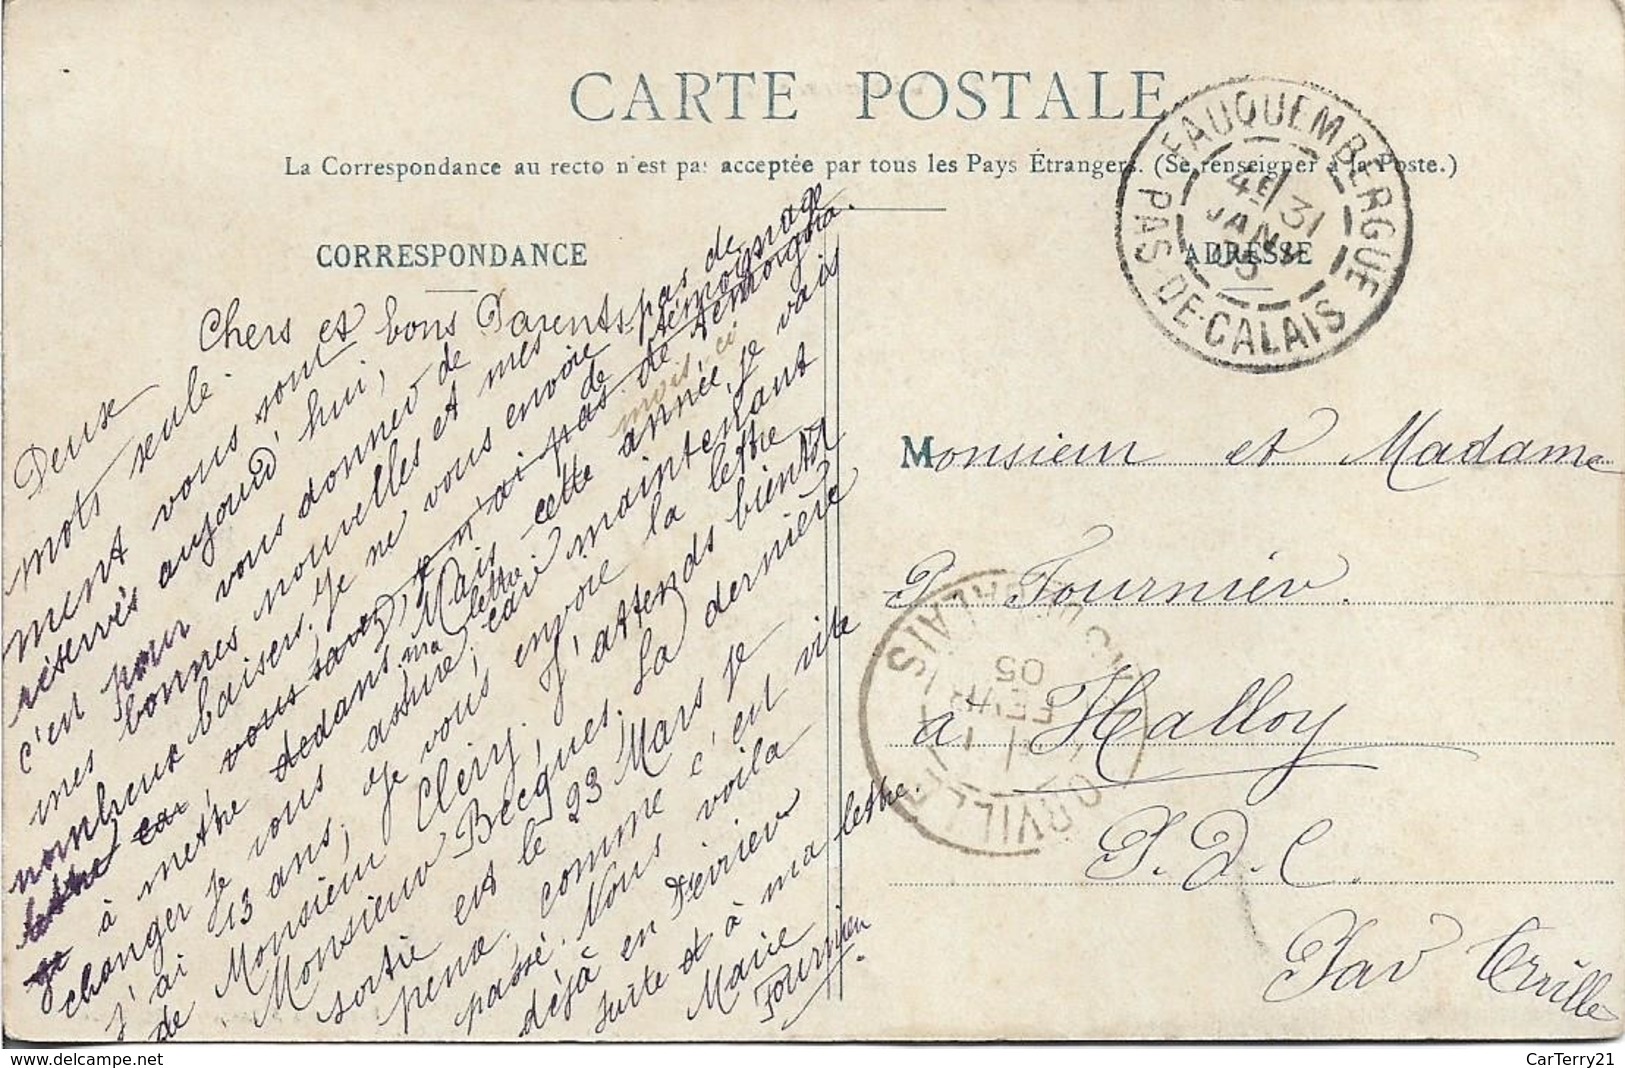 CARTE POSTALE
La Correspondance au recto n'est pas acceptée par tous les Pays Étrangers. (Se renseigner à la Poste.)
CORRESPONDANCE
ADRESSE
FAUQUEMBERGUE
PAS-DE-CALAIS
4E 31
JANV
05
Chers et bons Parents
Deux
mots seule-
ment vous sont
réservés aujourd'hui,
c'en pour vous donner de
mes bonnes nouvelles et mes
nombreux baisers. Je ne vous envoie pas de
lettre car, vous savez, je n'ai pas de temoigna
de témoignage
à mettre dedans. Mais cette année, je vais
mois-ci
changer je vous assure, car maintenant
ma lettre
j'ai 13 ans, Je vous envoie la lettre
de Monsieur Clery. J'attends bientôt
Monsieur Becques. La dernière
sortie est le 23 Mars je
pense, comme c'est vite
passé. Nous voilà
déjà en Février
suite et à ma lettre.
Marie
Fournier
Monsieur et Madame
P. Fournier.
à Halloy
P. D. C.
Par Orville
ORVILLE
CALAIS
1
FEVR
05
delcampe.net
CarTerry21